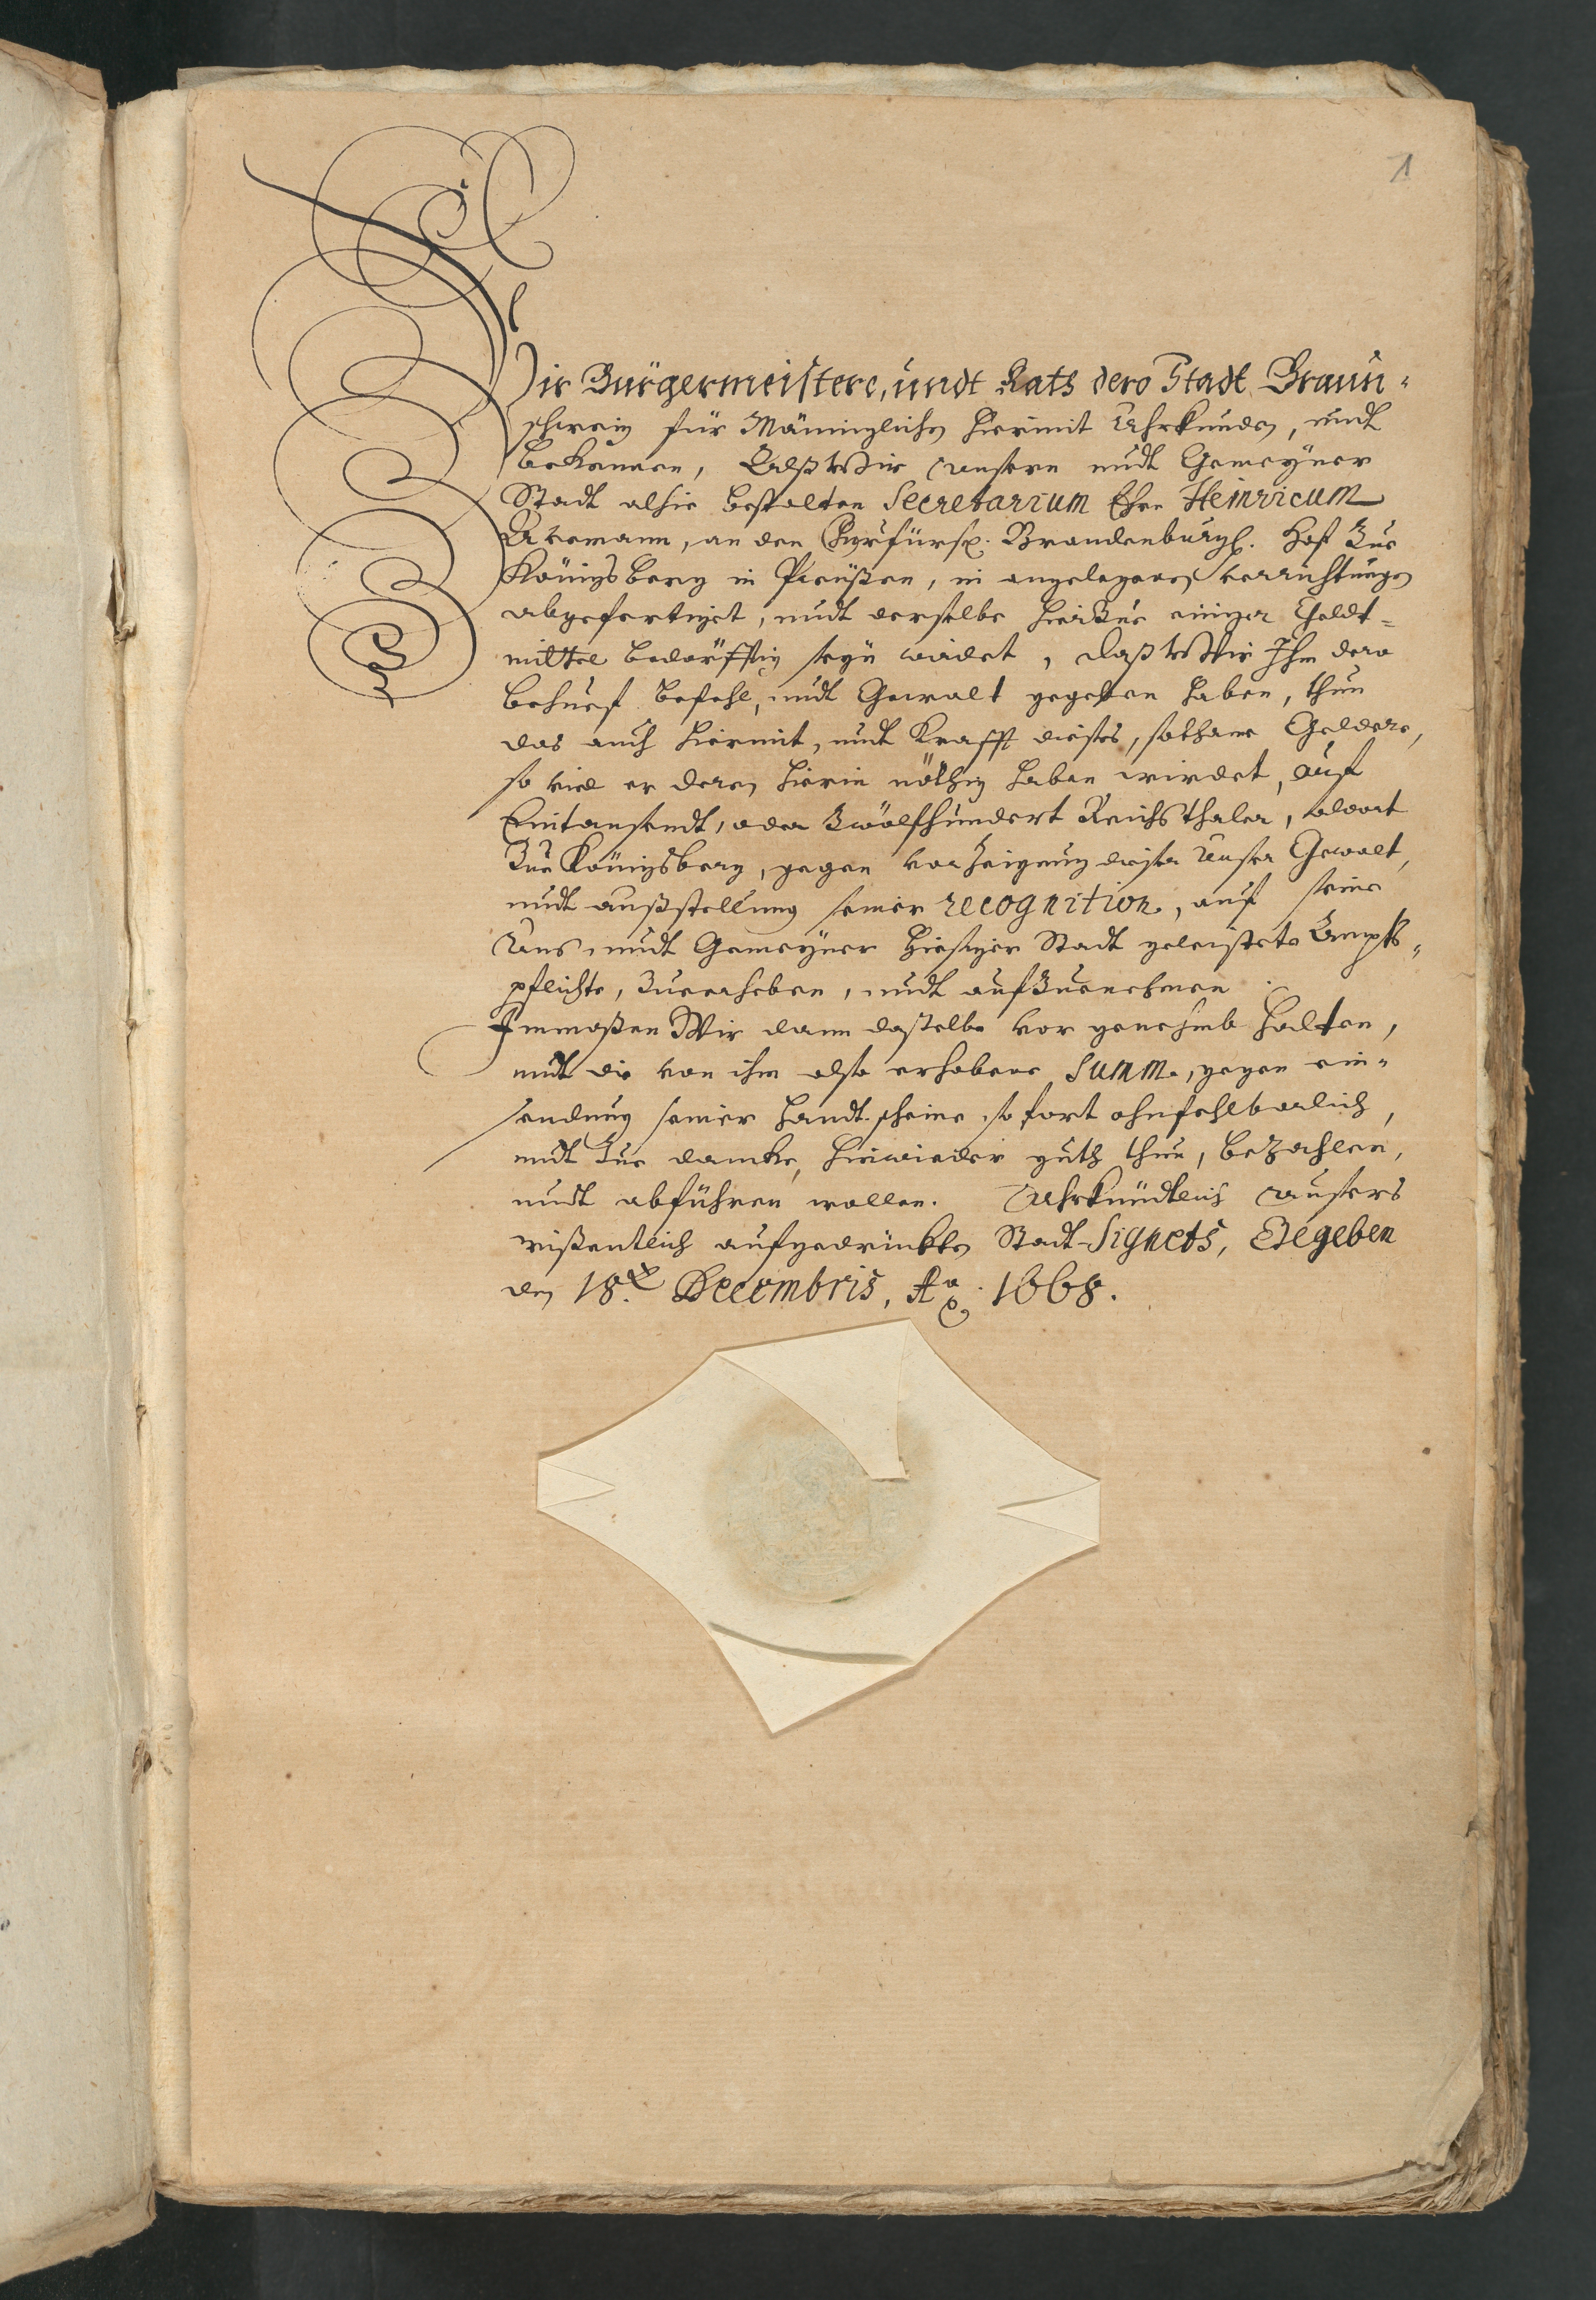 1
Wir Bürgermeistere, undt Rats dero Stadt Braun-
schweig für Männiglichen hiermit Uhrkunden, undt
bekennen, Alß Wir Unsern undt Gemeyner
Stadt alhie bestalten Secretarium Ehrn Heinricum
an den Churfürstl. Brandenburgl. Hof Zue
Königsberg in Preüßen, in angelegenen verrichtungen
abgefertiget, undt derselbe hierzue einiger Geldt-
mittel bedörfftig seyn würdet, daß Wir Ihm dero
behuef befehl, undt Gewalt gegeben haben, thun
das auch hiermit, undt Krafft dieses, sothane Geldere,
so viel er deren hierin nöthig haben wirdet, auf
Eintausendt, oder Zwölfhundert Reichsthaler, aldort
Zue Königsberg, gegen vorzeigung dieser Unser Gewalt,
undt außstellung seiner recognition, auf seine
Uns undt Gemeyner hiesiger Stadt geleistete Ampts-
pflichte, Zuerheben, undt aufzuenehmen.
Immaßen Wir dann dasselbe vor genehmb halten,
undt die von ihm also erhobene Summe, gegen ein-
sendung seiner handtscheine sofort ohnfehlbarlich,
undt Zue dancke, hinwieder guth thun, bezahlen,
undt abführen wollen. Uhrkundtlich unsers
wißentlich aufgedrückten Stadt-Signets, Gegeben
den 18. Decembris, Ao. 1668.